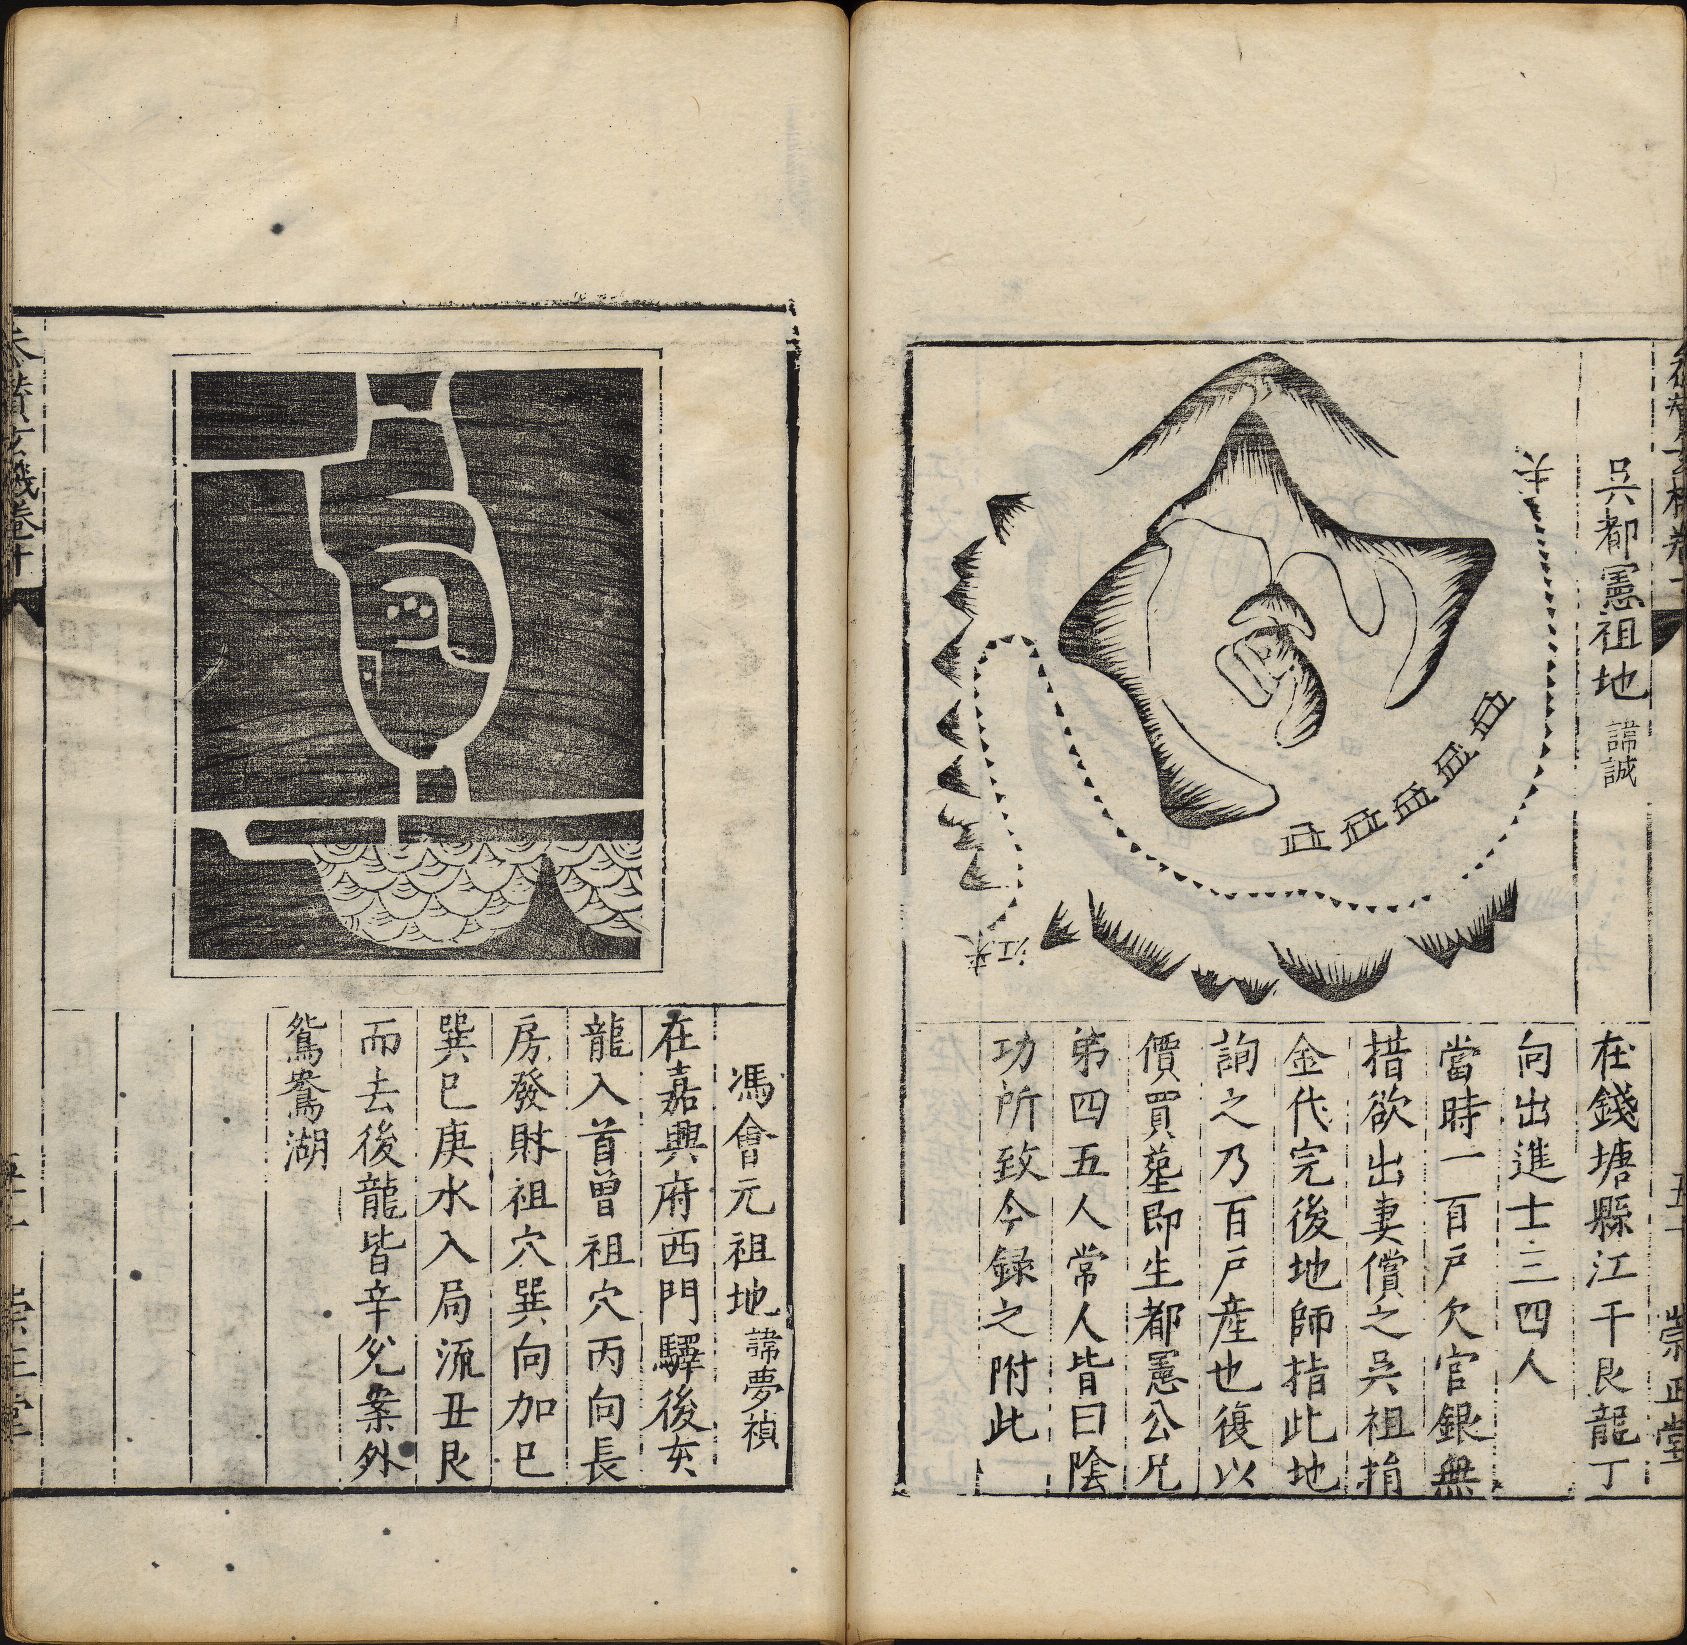 吳都憲祖地 諱誠
水去
江來
在錢塘縣江干艮龍丁
向出進士三四人
當時一百戶欠官銀無
措欲出妻償之吳祖捐
金代完後地師指此地
詢之乃百戶產也復以
價買塟即生都憲公兄
弟四五人常人皆曰陰
功所致今録之附此
崇正堂
馮會元祖地 諱夢禎
在嘉興府西門驛後亥
龍入首曾祖穴丙向長
房發財祖穴巽向加巳
巽巳庚水入局流丑艮
而去後龍皆辛兌案外
鴛鴦湖
崇正堂